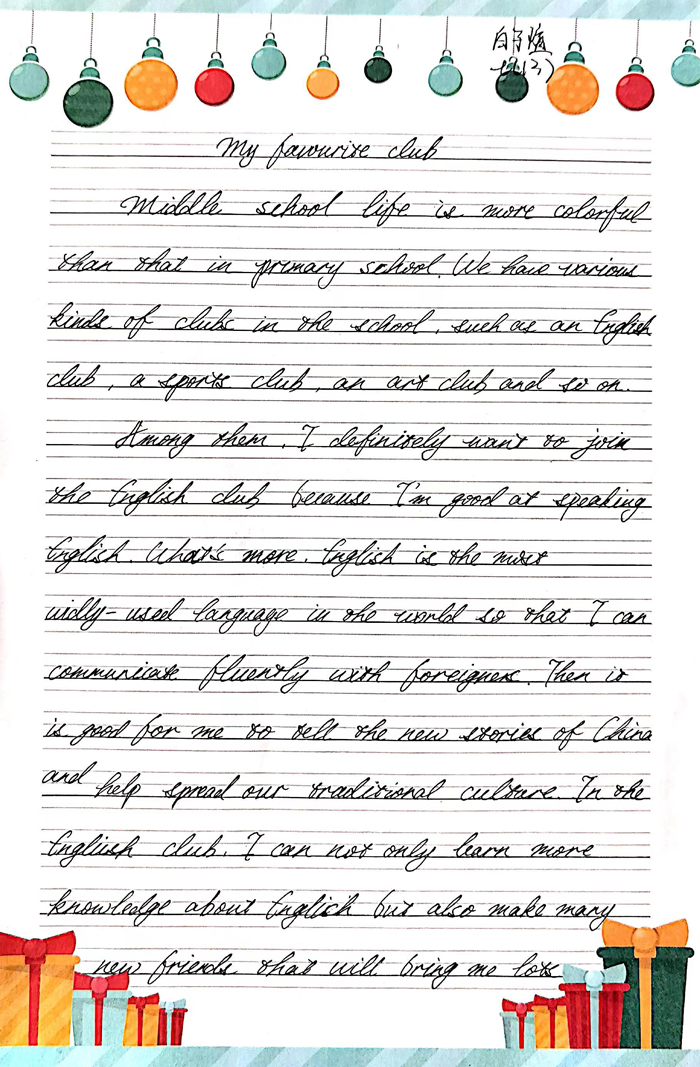 My favourite club
Middle school life is more colorful
than that in primary school. We have various
kinds of clubs in the school, such as an English
club, a sports club, an art club and so on.
Among them, I definitely want to join
the English club because I'm good at speaking
English. What's more, English is the most
widly-used language in the world so that I can
communicate fluently with foreigners. Then it
is good for me to tell the new stories of China
and help spread our traditional culture. In the
English club, I can not only learn more
knowledge about English but also make many
new friends that will bring me lots